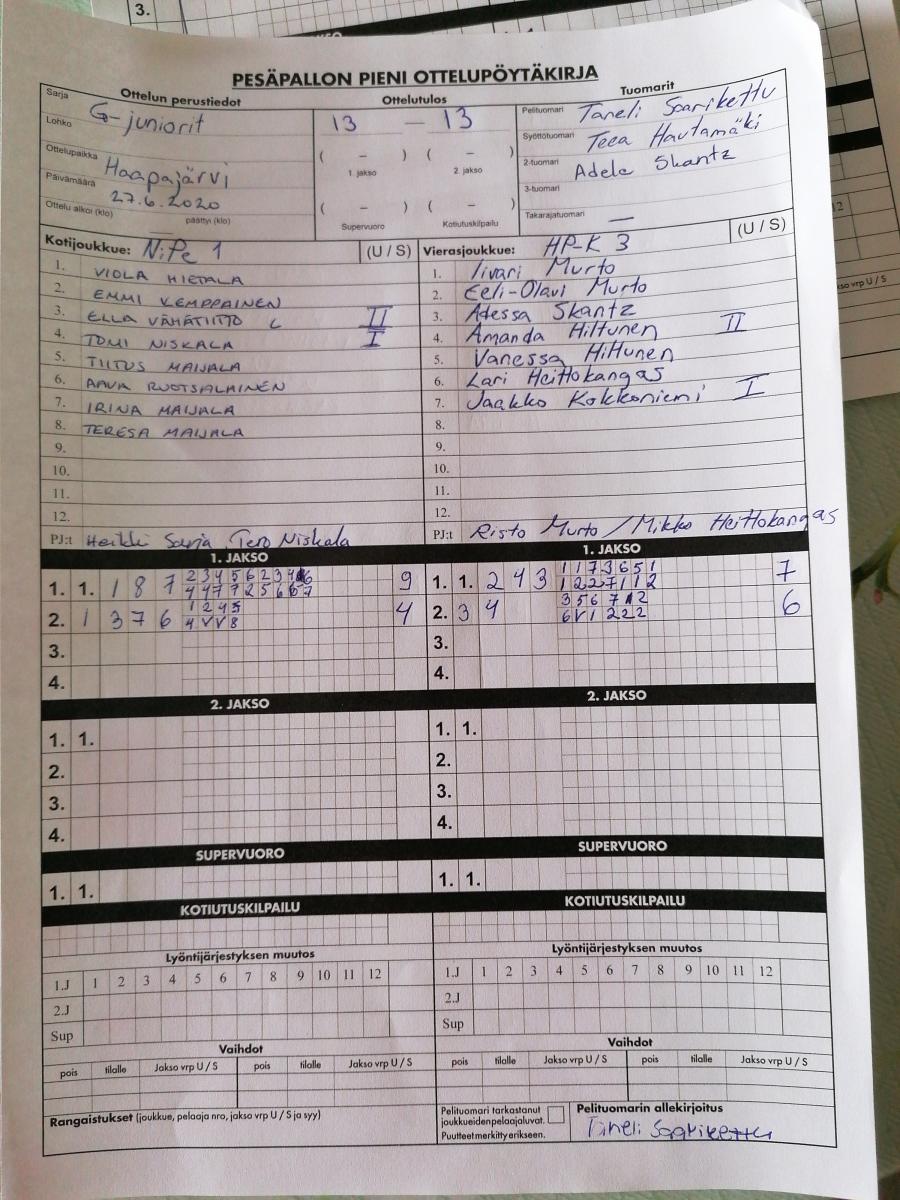 3.
PESÄPALLON PIENI OTTELUPÖYTÄKIRJA
Sarja Ottelun perustiedot Ottelutulos Tuomarit
Lohko G-juniorit 13 – 13 Pelituomari Taneli Saarikettu
Syöttötuomari Teea Hautamäki
Ottelupaikka Haapajärvi ( – ) ( – ) 2-tuomari Adele Skantz
1. jakso 2. jakso
Päivämäärä 27.6.2020 3-tuomari
Ottelu alkoi (klo) päättyi (klo) ( – ) ( – ) Takarajatuomari —
Supervuoro Kotiutuskilpailu
Kotijoukkue: NiPe 1 (U / S) Vierasjoukkue: HP-K 3 (U / S)
1. VIOLA HIETALA 1. Iivari Murto
2. EMMI KEMPPAINEN 2. Eeli-Olavi Murto
3. ELLA VÄHÄTIITTO C II 3. Adessa Skantz
4. TOMI NISKALA I 4. Amanda Hiltunen II
5. TIITUS MAIJALA 5. Vanessa Hiltunen
6. AAVA RUOTSALAINEN 6. Lari Heittokangas
7. IRINA MAIJALA 7. Jaakko Kokkoniemi I
8. TERESA MAIJALA 8.
9. 9.
10. 10.
11. 11.
12. 12.
PJ:t Heikki Sarja Tero Niskala PJ:t Risto Murto / Mikko Heittokangas
1. JAKSO 1. JAKSO
1. 1. 1 8 7 9 1. 1. 2 4 3 1 1 7 3 6 5 1 7
1 2 2 7 1 1 2
2. 1 3 7 6 1 2 4 5 4 2. 3 4 3 5 6 7 1 2 6
4 V V 8 6 V 1 2 2 2
3. 3.
4. 4.
2. JAKSO 2. JAKSO
1. 1. 1. 1.
2. 2.
3. 3.
4. 4.
SUPERVUORO SUPERVUORO
1. 1. 1. 1.
KOTIUTUSKILPAILU KOTIUTUSKILPAILU
Lyöntijärjestyksen muutos Lyöntijärjestyksen muutos
1.J 1 2 3 4 5 6 7 8 9 10 11 12 1.J 1 2 3 4 5 6 7 8 9 10 11 12
2.J 2.J
Sup Sup
Vaihdot Vaihdot
pois tilalle Jakso vrp U / S pois tilalle Jakso vrp U / S pois tilalle Jakso vrp U / S pois tilalle Jakso vrp U / S
Rangaistukset (joukkue, pelaaja nro, jakso vrp U / S ja syy) Pelituomari tarkastanut Pelituomarin allekirjoitus
joukkueiden pelaajaluvat.
Puutteet merkitty erikseen. Taneli Saarikettu